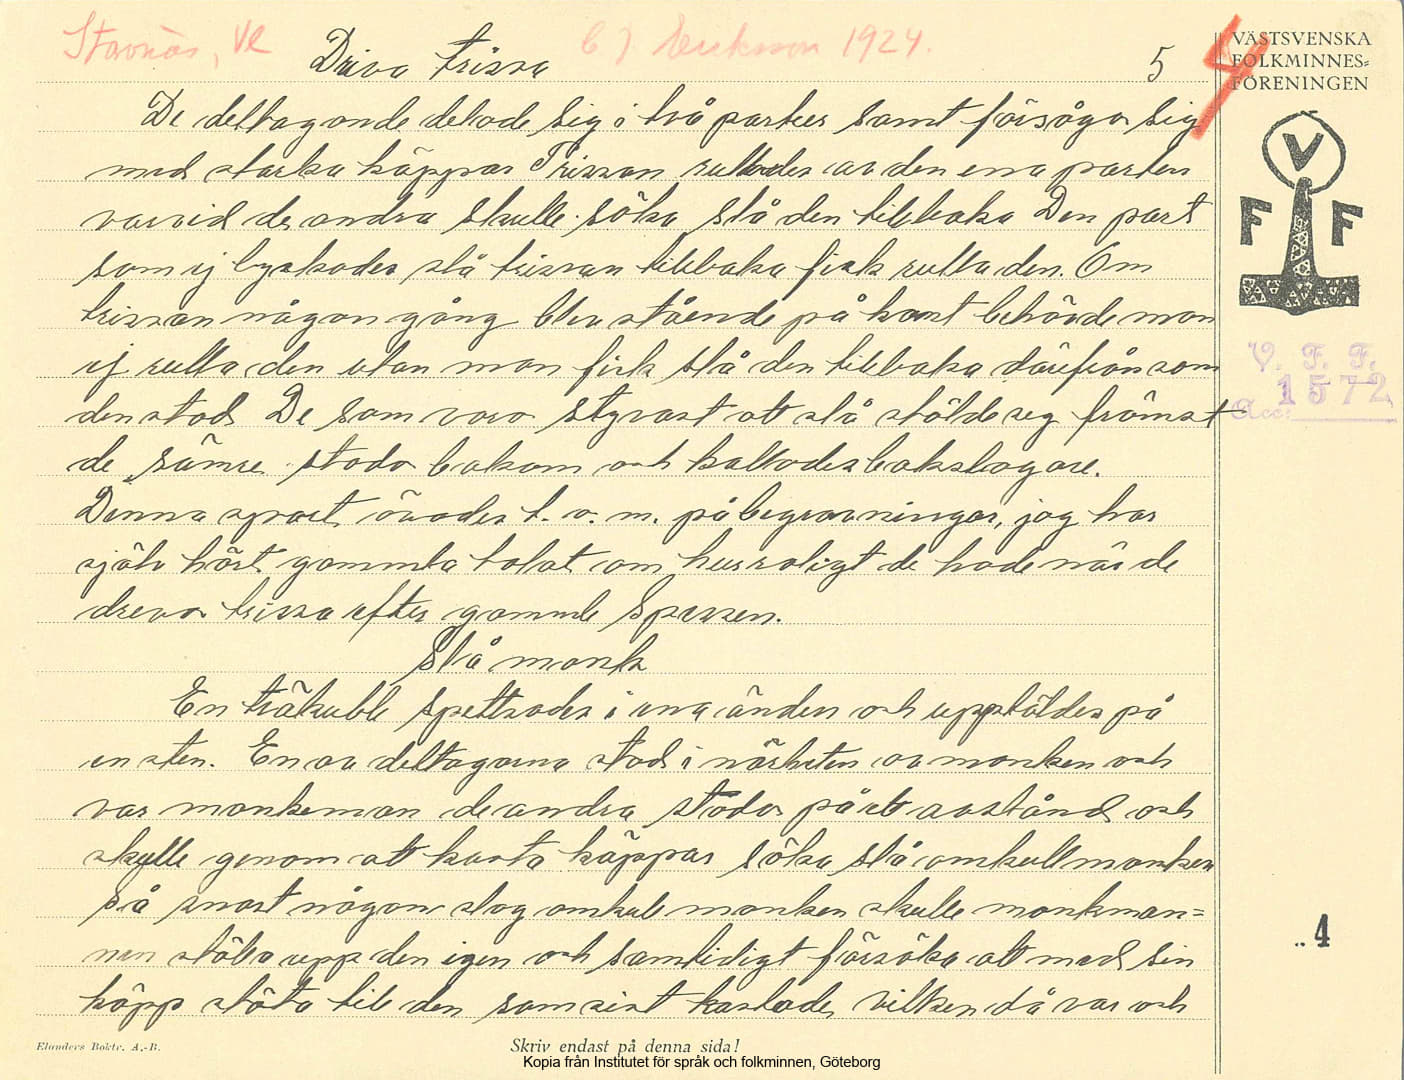 Stavnäs, Vl C J Eriksson 1924.
Driva trissa 5 4
VÄSTSVENSKA
FOLKMINNES=
FÖRENINGEN
De deltagande delade sig i två parter samt försågo sig
med starka käppar Trissan rullades av den ena parten
varvid de andra skulle söka slå den tillbaka Den part
som ej lyckades slå trissan tillbaka fick rulla den. Om
trissan någon gång blev stående på kant behövde man
ej rulla den utan man fick slå den tillbaka därifrån som
den stod De som voro styvast att slå stälde sig främst
de sämre stodo bakom och kallades bakslagare.
Denna sport övades t. o. m. på begravningar, jag har
själv hört gammla talat om hur roligt de hade när de
drevo trissa efter gamle Spersen.
Slå monk
En träkubb spettsades i ena änden och uppstäldes på
en sten. En av deltagarna stod i närheten av monken och
var monkeman de andra stodo på ett avstånd och
skulle genom att kasta käppar söka slå omkull monken
så snart någon slog omkull monken skulle monkman=
nen ställa upp den igen och samtidigt försöka att med sin
käpp stöta till den som sist kastade vilken då var och
V F F
V. F. F.
1572
Acc:
..4
Elanders Boktr. A.-B.
Skriv endast på denna sida!
Kopia från Institutet för språk och folkminnen, Göteborg